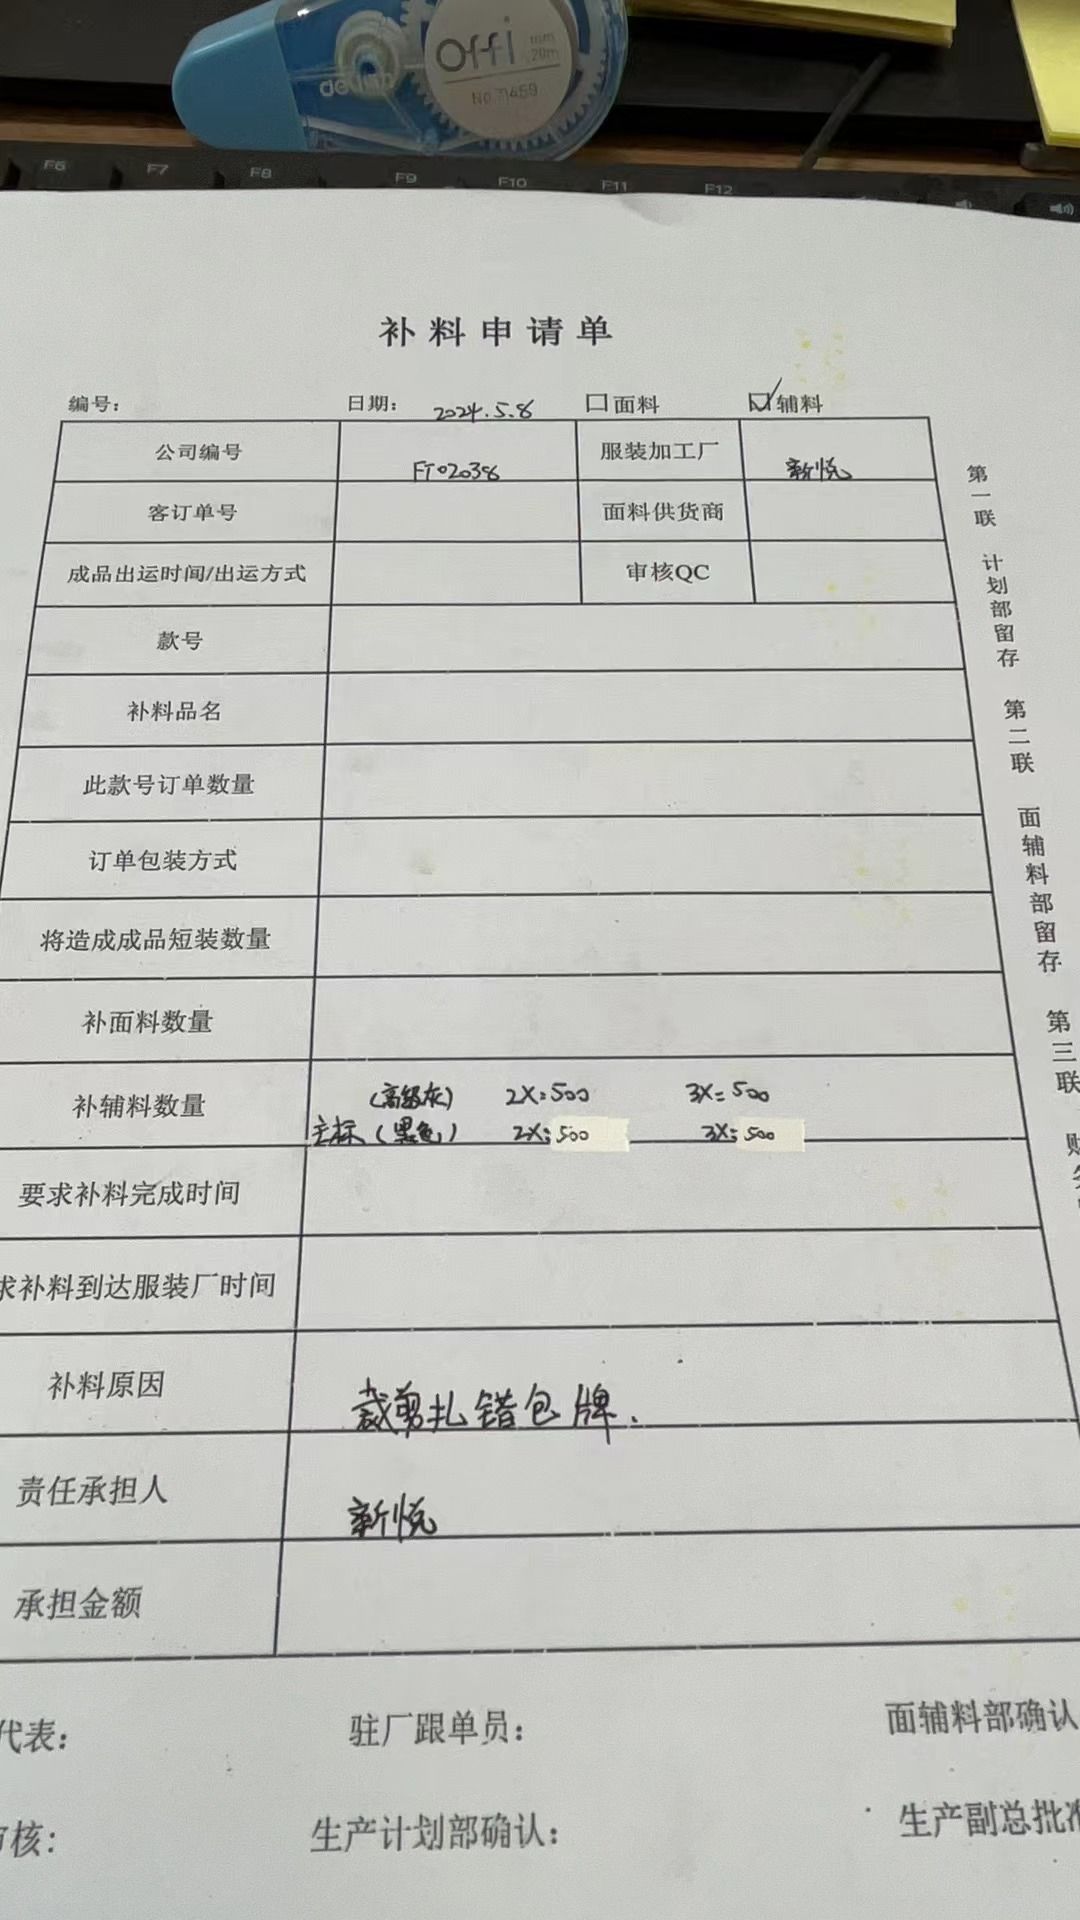 Offi
mm
20m
No.71459
deli
F6 F7 F8 F9 F10 F11 F12
补料申请单
编号： 日期： 2024.5.8 面料 辅料
公司编号 FT02038 服装加工厂 新悦
客订单号 面料供货商
成品出运时间/出运方式 审核QC
款号
补料品名
此款号订单数量
订单包装方式
将造成成品短装数量
补面料数量
补辅料数量 (高级灰) 2X=500 3X=500
主标(黑色) 2X:500 3X:500
要求补料完成时间
求补料到达服装厂时间
补料原因 裁剪扎错包牌.
责任承担人 新悦
承担金额
代表： 驻厂跟单员： 面辅料部确认
核： 生产计划部确认： 生产副总批准
第一联 计划部留存 第二联 面辅料部留存 第三联 财